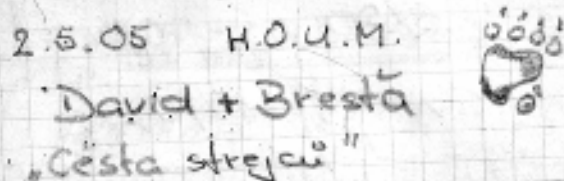 2.5.05 H.O.U.M.
David + Brestă
„Cesta strejců"